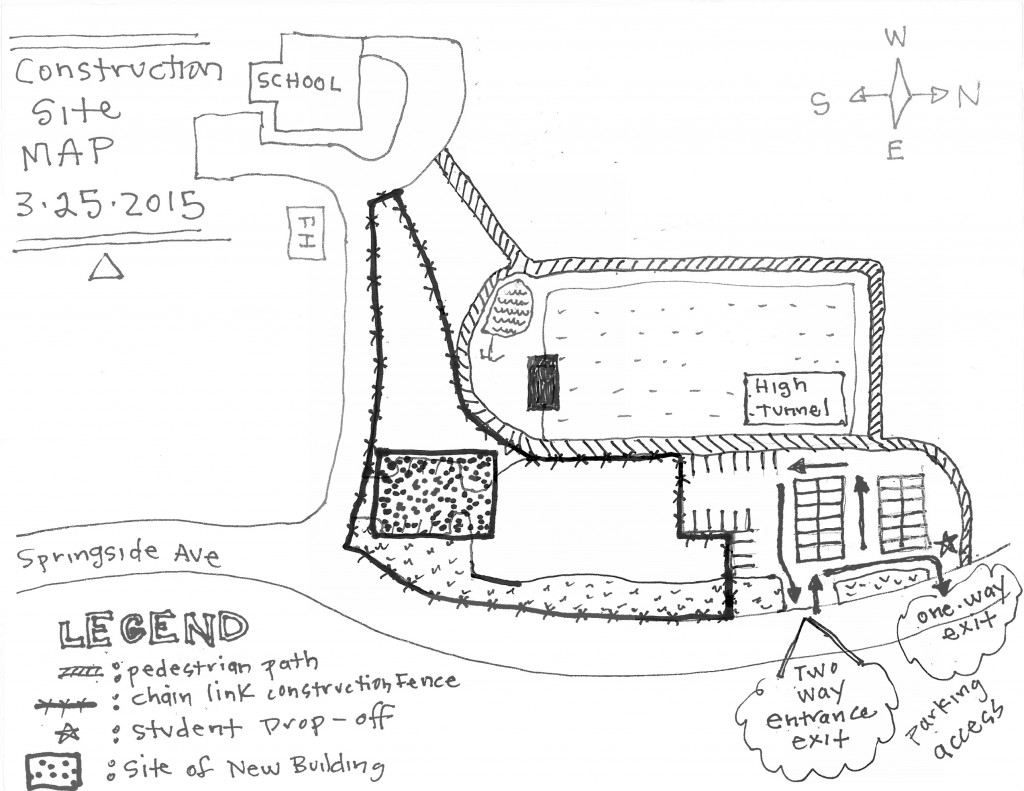 Construction
Site
MAP
3.25.2015
SCHOOL
W
S
N
E
FH
High
Tunnel
Springside Ave
LEGEND
: pedestrian path
: chain link construction Fence
: Student Drop-off
: Site of New Building
one-way
exit
Two
way
entrance
exit
Parking
access